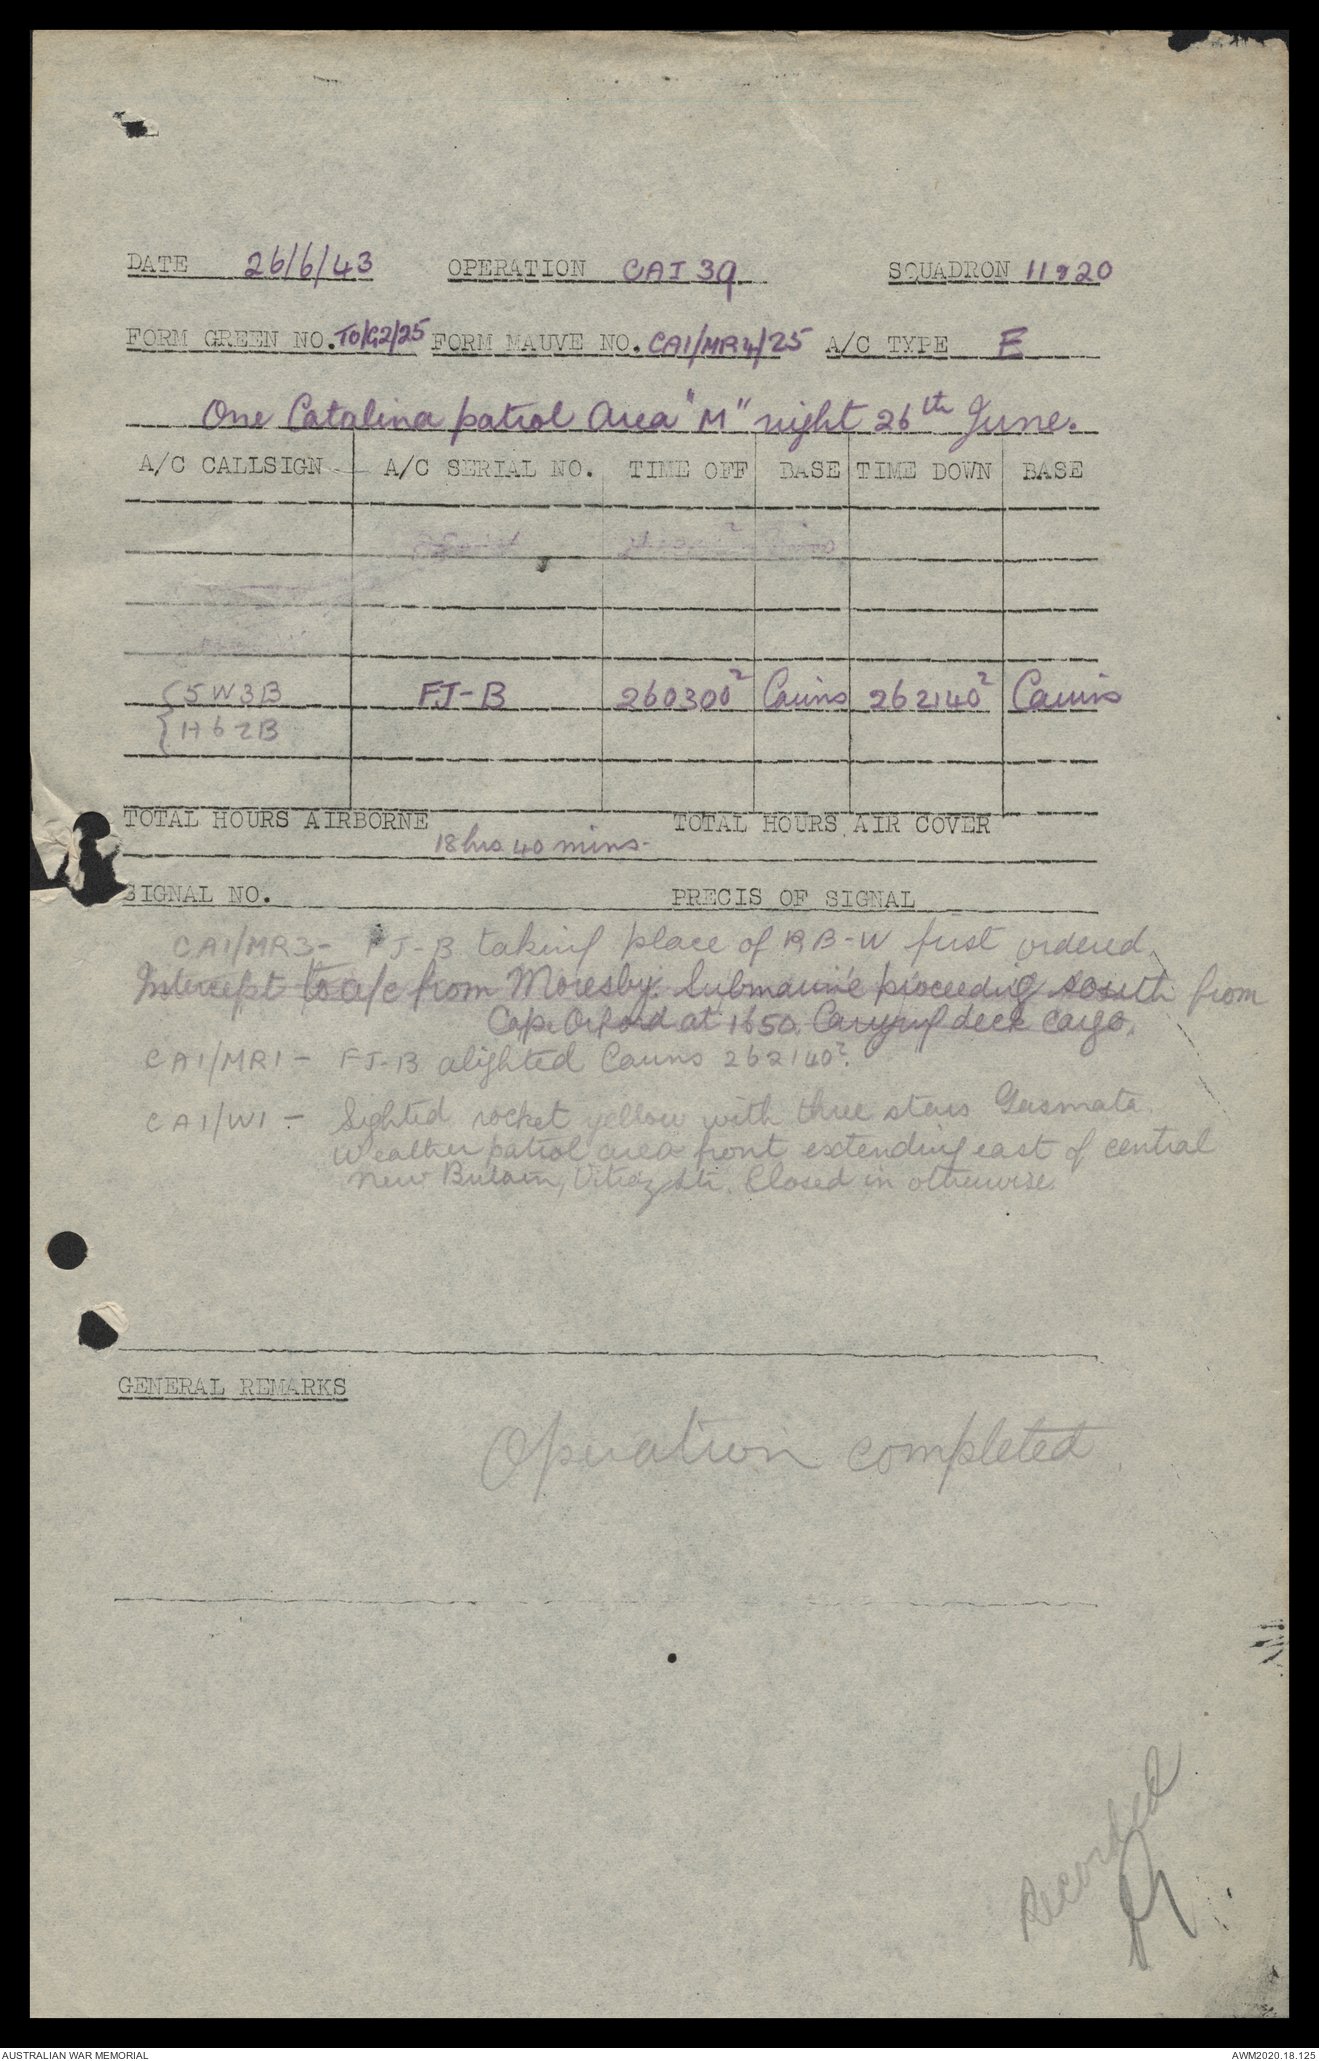 DATE 26/6/43 OPERATION CAI 39 SQUADRON 11 & 20
FORM GREEN NO. TO/G2/25 FORM MAUVE NO. CA1/MR4/25 A/C TYPE E
One Catalina patrol Area "M" night 26th June.
A/C CALLSIGN A/C SERIAL NO. TIME OFF BASE TIME DOWN BASE
5W3B FJ-B 260300Z Cairns 262140Z Cairns
H6ZB
TOTAL HOURS AIRBORNE TOTAL HOURS AIR COVER
18hrs 40 mins.
SIGNAL NO. PRECIS OF SIGNAL
CA1/MR3- FJ-B taking place of RB-W first ordered
Intercept to a/c from Moresby. Submarine proceeding south from
Cape Orford at 1650. Carrying deck cargo.
CA1/MR1- FJ-B alighted Cairns 262140Z.
CA1/W1- Sighted rocket yellow with three stars Gasmata
Weather patrol area front extending east of central
New Britain, Vitiaz Str. Closed in otherwise
GENERAL REMARKS
Operation completed
Recorded
AUSTRALIAN WAR MEMORIAL AWM2020.18.125